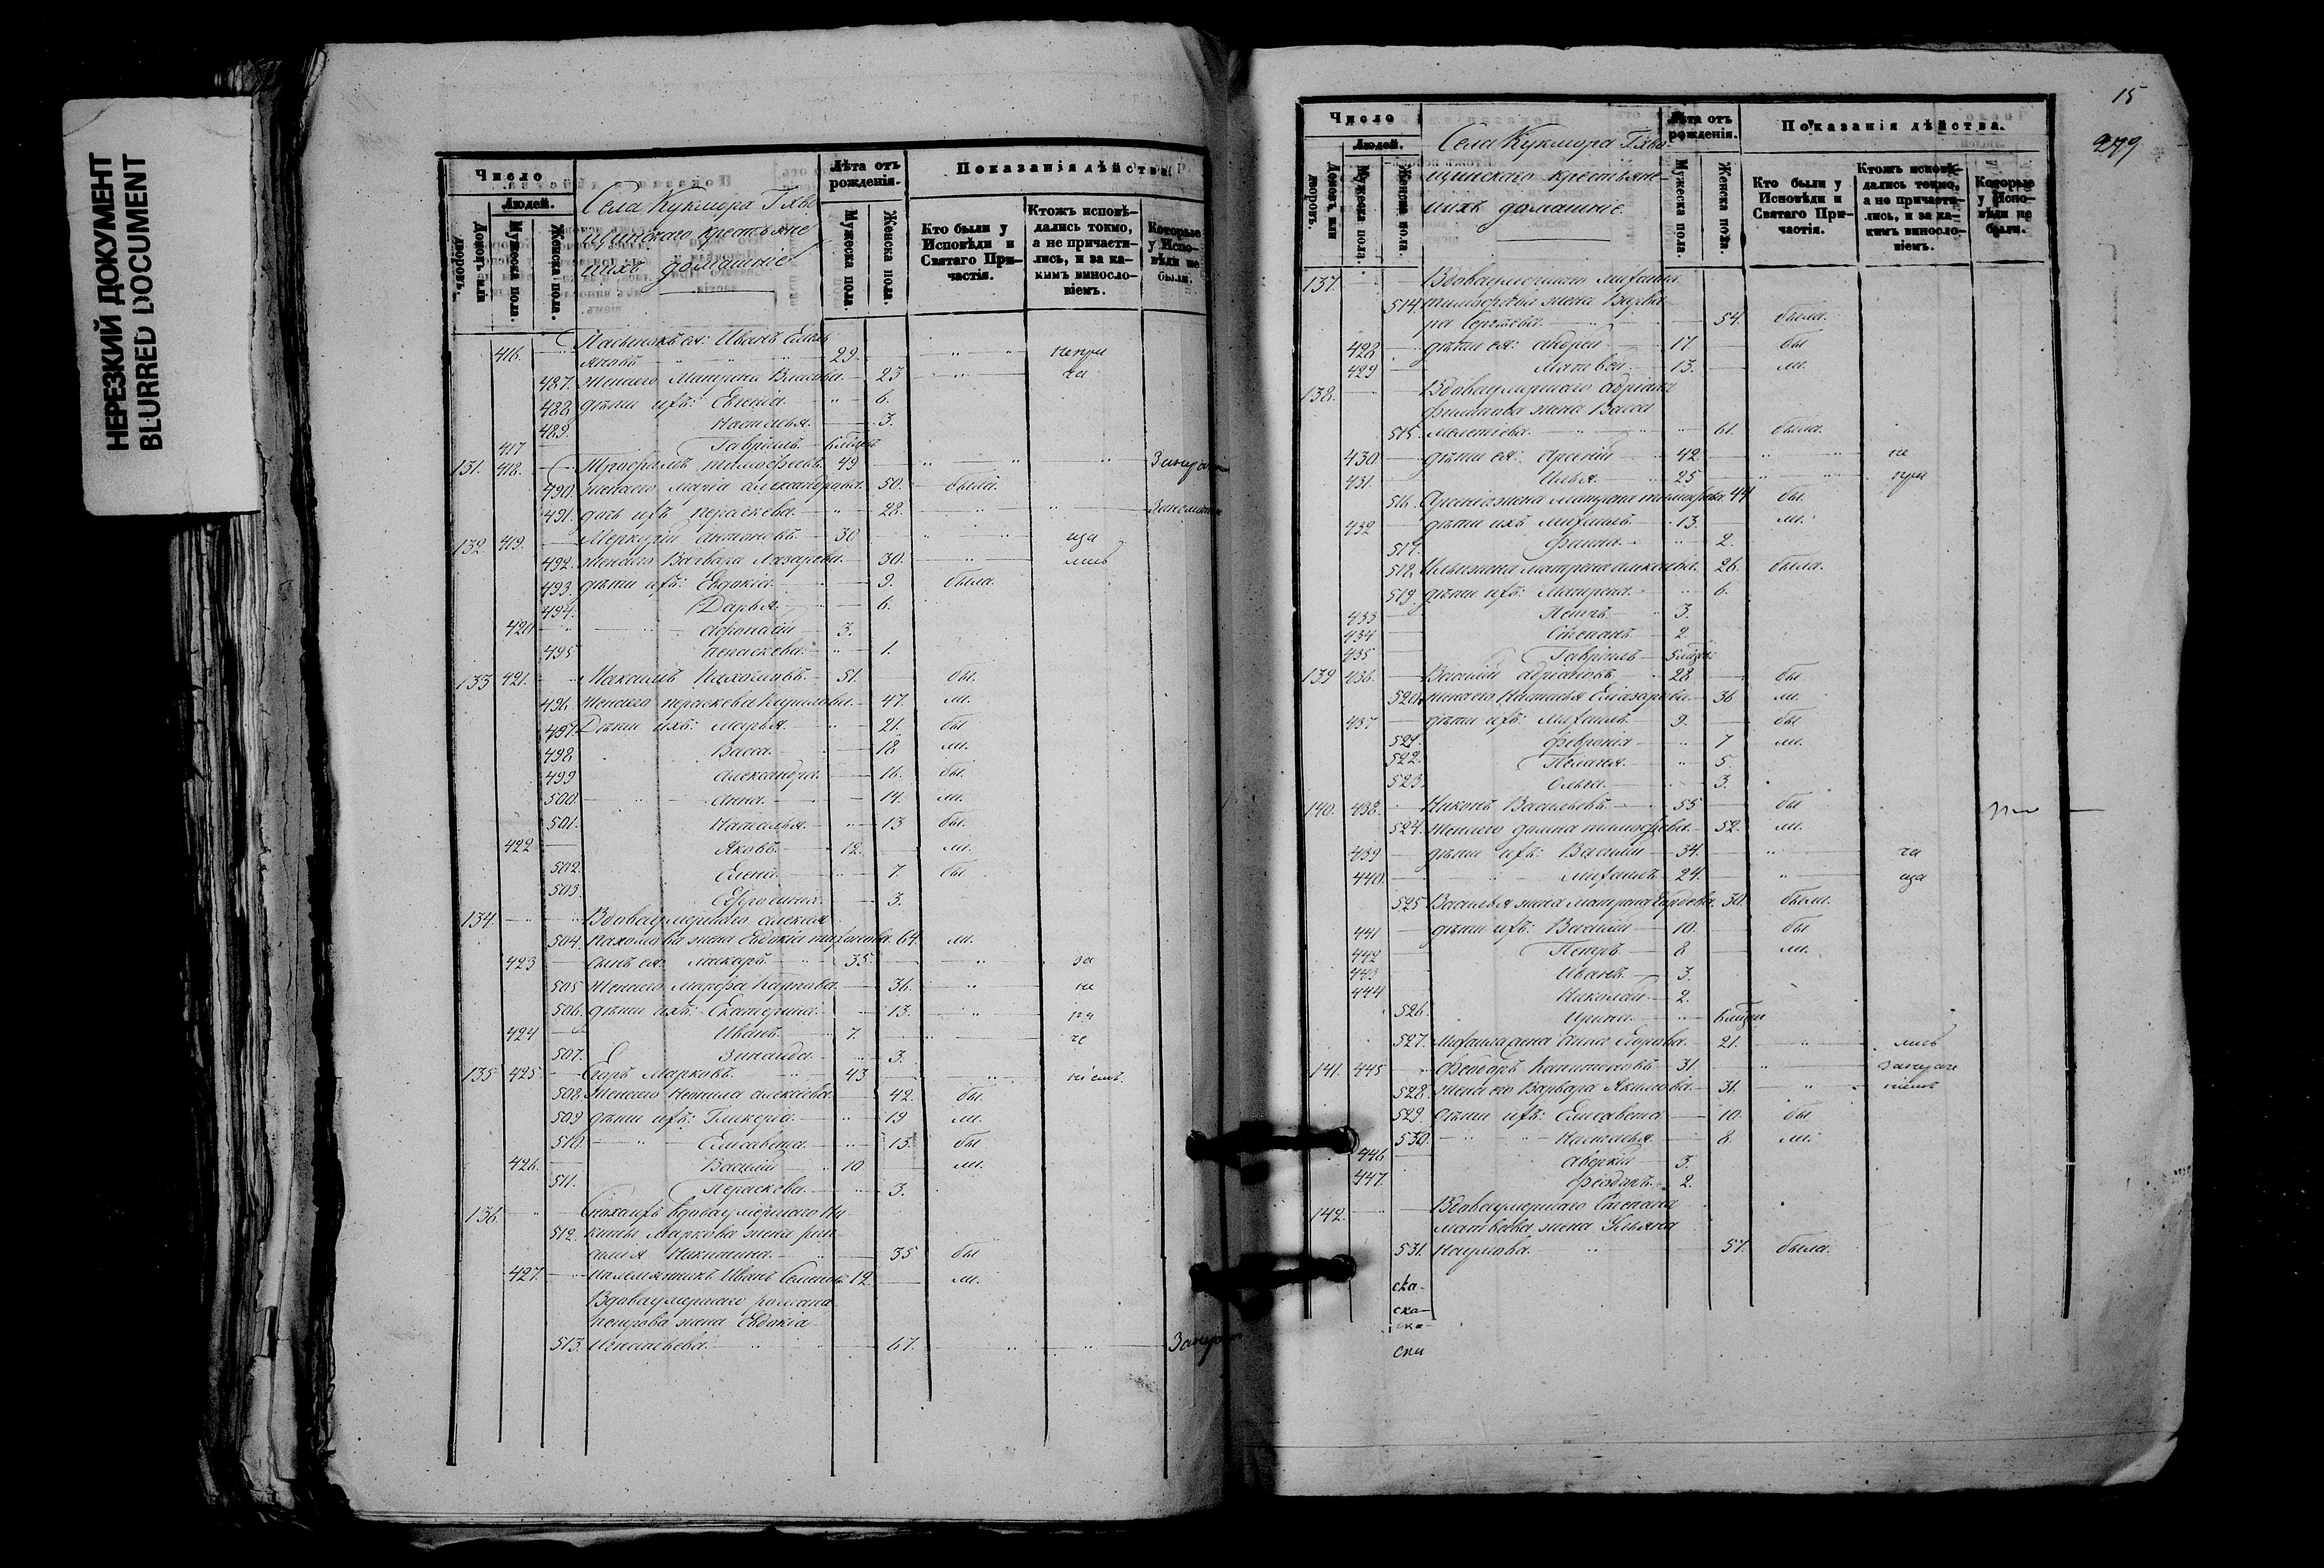 НЕРЕЗКИЙ ДОКУМЕНТ
BLURRED DOCUMENT
Число
Людей.
Домовъ или дворовъ.
Мужеска пола.
Женска пола.
Села Кукмора Гхво
щинскаго крестьяне
ихъ домашніе
Лѣта отъ рожденія.
Мужеска пола.
Женска пола.
Показанія дѣйства.
Кто были у Исповѣди и Святаго Причастія.
Ктожъ исповѣдались токмо, а не причастились, и за какимъ винословіемъ.
Которые у Исповѣди не были.
Пасынокъ ея: Иванъ
416. 29. непри
487. жена его Матрена Власова. 23 ча
488. дѣти ихъ: 6.
489. Наталья. 3.
417 Гавріилъ
131. 418. Трофимъ Тимофеевъ. 49
490. жена его Марія Александрова. 50. была.
491. дочь ихъ Параскева. 28.
132 419. Меркурій Антоновъ. 30 ща
492. жена его Варвара Лазарева. 30. лись
493. дѣти ихъ: Евдокія. 9. была.
494. Дарья. 6.
420 Афонасій 3.
495 Параскева. 1.
133 421. Максимъ Пахомовъ. 51. бы
496. жена его Параскева Кирилова. 47. ли.
497. Дѣти ихъ: Марья. 21. бы
498. Васса. 18 ли.
499 Александра. 16. бы.
500. Анна. 14. ли.
501. Наталья. 13 бы.
422 Яковъ. 12. ли.
502. Елена. 7. бы
503. Ефросинія. 3.
134. Вдова умершаго Алексея
504. Пахомова жена Евдокія Тихонова. 64. ли.
423 сынъ ея: Макаръ. 35. за
505 Жена его Марфа Карпова. 36. не
506. дѣти ихъ: Екатерина. 13.
424 Иванъ. 7.
507. Зинаида. 3.
135 425. Егоръ Марковъ. 43 ніемъ.
508. Жена его Неонила Алексѣева. 42. бы.
509 дѣти ихъ: Гликерія. 19 ли.
510. Елисавета. 15. бы
426. Василій 10 ли.
511. Параскева. 3.
136. вдова умершаго Ни
512. киты Маркова жена
Никитина. 35 бы
427. племянникъ Иванъ Семеновъ 12. ли.
Вдова умершаго Романа
Петрова жена Евдокія
513. Игнатьева. 67.
15
279
Число
Людей.
Домовъ или дворовъ.
Мужеска пола.
Женска пола.
Села Кукмора Гхво
щинскаго крестьяне
ихъ домашніе.
Лѣта отъ рожденія.
Мужеска пола.
Женска пола.
Показанія дѣйства.
Кто были у Исповѣди и Святаго Причастія.
Ктожъ исповѣдались токмо, а не причастились, и за какимъ винословіемъ.
Которые у Исповѣди не были.
137. Вдова умершаго Михаила
514. Тимофеева жена Варва
ра Сергеева. 54. была.
428 дѣти ея: Андрей 17 бы
429 Матвей. 13. ли.
138. Вдова умершаго Адріана
Филипова жена Васса
515. Мелентіева. 61. была.
430 дѣти ея: Арсеній 42. не
431. Илья. 25 при
516. Арсенія жена Матрена Тимофеева 44 бы.
432 дѣти ихъ Михаилъ. 13. ли.
517. Фаина. 2.
518. Ильи жена Матрена Алексѣева. 26. была.
519 дѣти ихъ: Матрена. 6.
433 Петръ. 3.
434 Степанъ 2.
435 Гавріилъ
139 436. Василій Адріановъ. 28 бы
520. жена его Наталья Елизарова. 36 ли.
437 дѣти ихъ: Михаилъ. 9. бы
521. Февронія 7 ли.
522. Пелагея. 5.
523. Ольга. 3.
140. 438. Никонъ Васильевъ. 55 бы
524. жена его Домна Тимофеева. 52. ли.
439 дѣти ихъ: Василій 34. ча
440. Михаилъ 24. ща
525 Василья жена Матрена 30. были.
441 дѣти ихъ: Василій 10. бы
442 Петръ. 8 ли.
443 Иванъ. 3.
444 Николай 2.
526. Ирина.
527. Михаила жена Анна Егорова. 21. лись
141. 445 Федоръ Капитоновъ 31.
528. жена его Варвара Акимова. 31. ніемъ
529. дѣти ихъ: Елисавета 10. бы
530. Наталья. 8. ли.
446 Аверкій 3.
447. Феодотъ 2.
142. Вдова умершаго Степана
Матвеева жена Ульяна
531. Наумова. 57. была.
ска-
ска-
ска-
ски